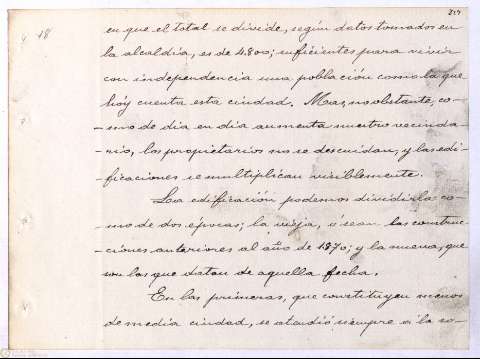 18
en que el total se divide, según datos tomados en
la alcaldía, es de 4.800; suficientes para vivir
con independencia una población como la que
hoy cuenta esta ciudad. Mas, no obstante, co-
-mo de dia en dia aumenta nuestro vecinda-
-rio, los propietarios no se descuidan, y las edi-
-ficaciones se multiplican visiblemente.
La edificación podemos dividirla co-
-mo de dos épocas; la vieja, ó sean las construc-
-ciones anteriores al año de 1870; y la nueva, que
son las que datan de aquella fecha.
En las primeras, que constituyen menos
de media ciudad, se atendió siempre á la so-